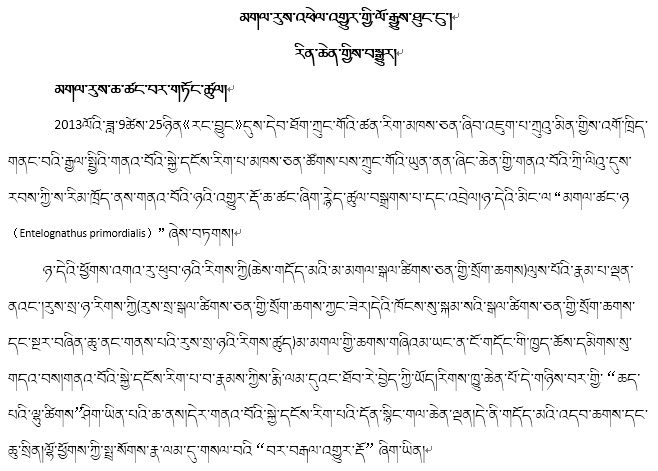 མགལ་རུས་འཕེལ་འགྱུར་གྱི་ལོ་རྒྱུས་ཐུང་ངུ།
རིན་ཆེན་གྱིས་བསྒྱུར།
མགལ་རུས་ཆ་ཚང་བར་གཏོང་ཚུལ།
2013ལོའི་ཟླ་9ཚེས་25ཉིན《རང་བྱུང》དུས་དེབ་ཐོག་ཀྲུང་གོའི་ཚན་རིག་མཁས་ཅན་ཞིབ་འཇུག་པ་ཀྲུའུ་མིན་གྱིས་འགོ་ཁྲིད་
གནང་བའི་རྒྱལ་སྤྱིའི་གནའ་བོའི་སྐྱེ་དངོས་རིག་པ་མཁས་ཅན་ཚོགས་པས་ཀྲུང་གོའི་ཡུན་ནན་ཞིང་ཆེན་གྱི་གནའ་བོའི་ཀྲི་ལིའུ་དུས་
རབས་ཀྱི་ས་རིམ་ཁྲོད་ནས་གནའ་བོའི་ཉའི་འགྱུར་རྡོ་ཆ་ཚང་ཞིག་རྙེད་ཚུལ་བསྒྲགས་པ་དང་འབྲེལ།ཉ་དེའི་མིང་ལ “མགལ་ཚང་ཉ
（Entelognathus primordialis）” ཞེས་བཏགས།
ཉ་དེའི་ཕྱོགས་འགའ་རུ་ཕུབ་ཉའི་རིགས་ཀྱི(ཆེས་གདོད་མའི་མ་མགལ་སྒལ་ཚིགས་ཅན་གྱི་སྲོག་ཆགས)ལུས་པོའི་རྣམ་པ་ལྡན་
ནའང་།རུས་སྲ་ཉ་རིགས་ཀྱི(རུས་སྲ་སྒལ་ཚིགས་ཅན་གྱི་སྲོག་ཆགས་ཀྱང་ཟེར།དེའི་ཁོངས་སུ་སྐམ་སའི་སྒལ་ཚིགས་ཅན་གྱི་སྲོག་ཆགས་
དང་སྔར་བཞིན་ཆུ་ནང་གནས་པའི་རུས་སྲ་ཉའི་རིགས་ཚུད)མ་མགལ་གྱི་ཆགས་གཞིའམ་ཡང་ན་ངོ་གདོང་གི་ཁྱད་ཆོས་དམིགས་སུ་
གདའ་བས།གནའ་བོའི་སྐྱེ་དངོས་རིག་པ་བ་རྣམས་ཀྱིས་རྨི་ལམ་དུའང་ཐོབ་རེ་བྱེད་ཀྱི་ཡོད།རིགས་ཁྱུ་ཆེན་པོ་དེ་གཉིས་བར་གྱི “ཆད་
པའི་ལྷུ་ཚིགས”ཤིག་ཡིན་པའི་ཆ་ནས།དེར་གནའ་བོའི་སྐྱེ་དངོས་རིག་པའི་དོན་སྙིང་གལ་ཆེན་ལྡན།དེ་ནི་གདོད་མའི་འདབ་ཆགས་དང་
ཆུ་སྲིན།ལྷོ་ཕྱོགས་ཀྱི་སྤྲ་སོགས་རྣ་ལམ་དུ་གསལ་བའི “བར་བརྒལ་འགྱུར་རྡོ” ཞིག་ཡིན།